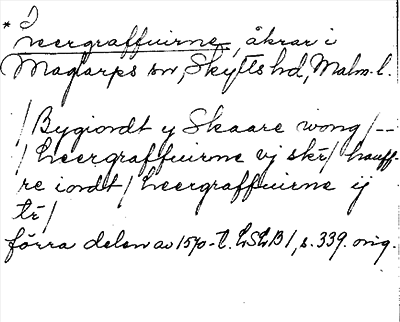 * I
Leergraffuirne, åkrar i
Maglarps sn, Skytts hd, Malm. l.
/Bygiordt y Skaare wong/--
/Leergraffuirne vj skr̄/ hauff-
re iordt/Leergraffuirne ij
tr̄/
förra delen av 1570-t. LSLB1, s. 339. orig.